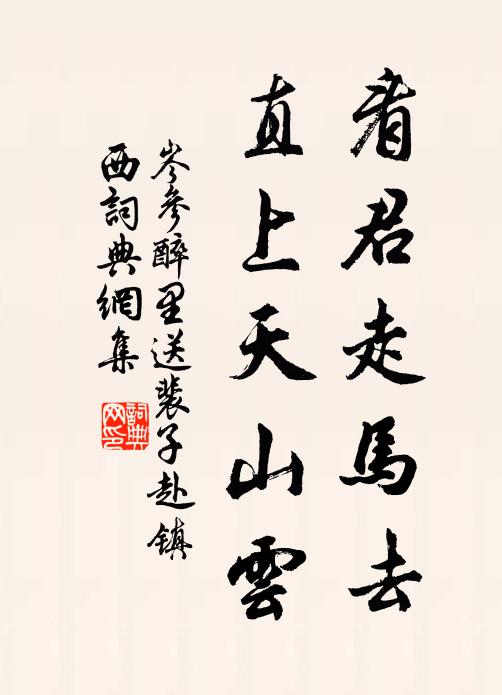 看君走馬去
直上天山雲
岑參醉里送裴子赴鎮
西詞典網集
詞典
网印